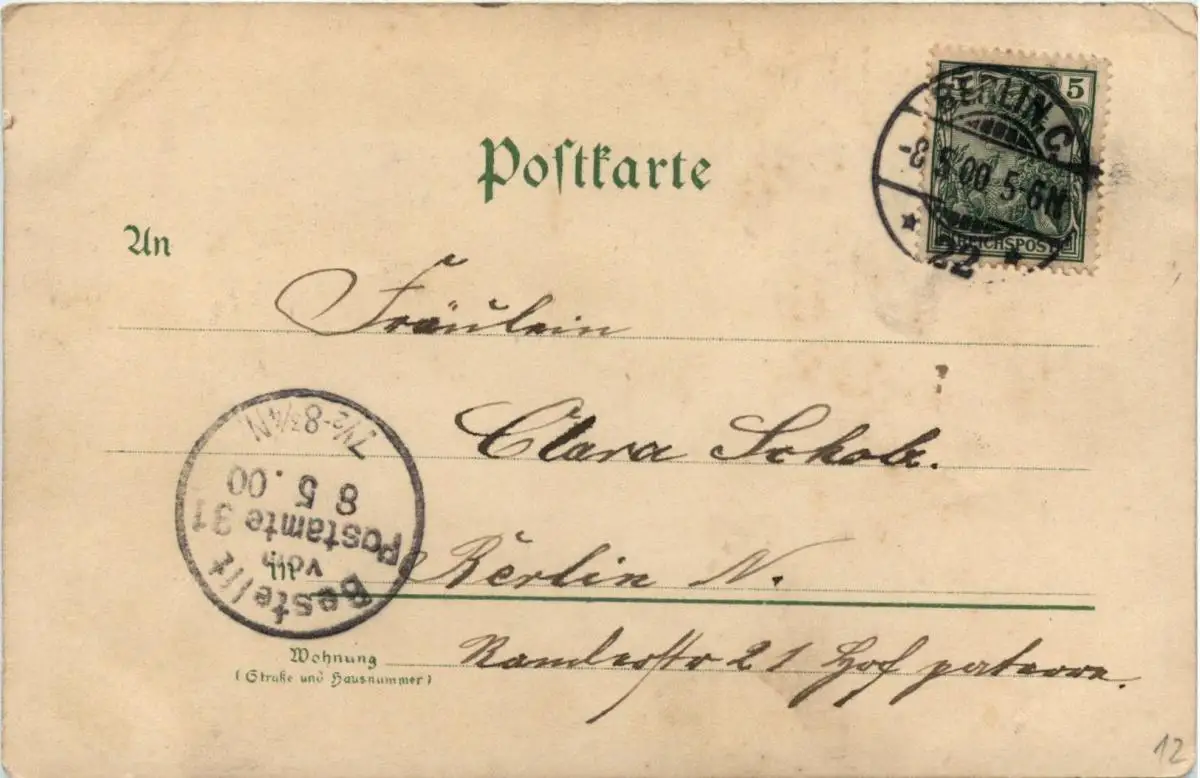 Postkarte
5
BERLIN. C.
-8.5.00 5-6N
* 22 *
REICHSPOST
An
Fräulein
Clara Scholz.
7½-8¾N
8 5. 00
Postamte 31
vom
Bestellt
in
Berlin N.
Wohnung
(Straße und Hausnummer)
21 Hof parterre.
12